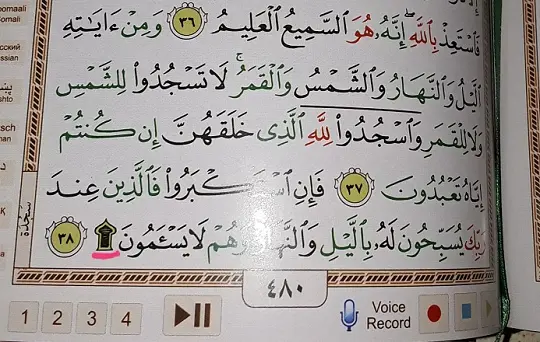 فَٱسْتَعِذْ بِٱللَّهِ إِنَّهُۥ هُوَ ٱلسَّمِيعُ ٱلْعَلِيمُ ٣٦ وَمِنْ ءَايَٰتِهِ
ٱلَّيْلُ وَٱلنَّهَارُ وَٱلشَّمْسُ وَٱلْقَمَرُ لَا تَسْجُدُوا۟ لِلشَّمْسِ
وَلَا لِلْقَمَرِ وَٱسْجُدُوا۟ لِلَّهِ ٱلَّذِى خَلَقَهُنَّ إِن كُنتُمْ
إِيَّاهُ تَعْبُدُونَ ٣٧ فَإِنِ ٱسْتَكْبَرُوا۟ فَٱلَّذِينَ عِندَ
رَبِّكَ يُسَبِّحُونَ لَهُۥ بِٱلَّيْلِ وَٱلنَّهَارِ وَهُمْ لَا يَسْـَٔمُونَ ۩ ٣٨
سَجْدَة
٤٨٠
1 2 3 4 Voice
Record